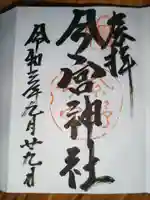 奉拝
今宮神社
令和三年 月廿九日